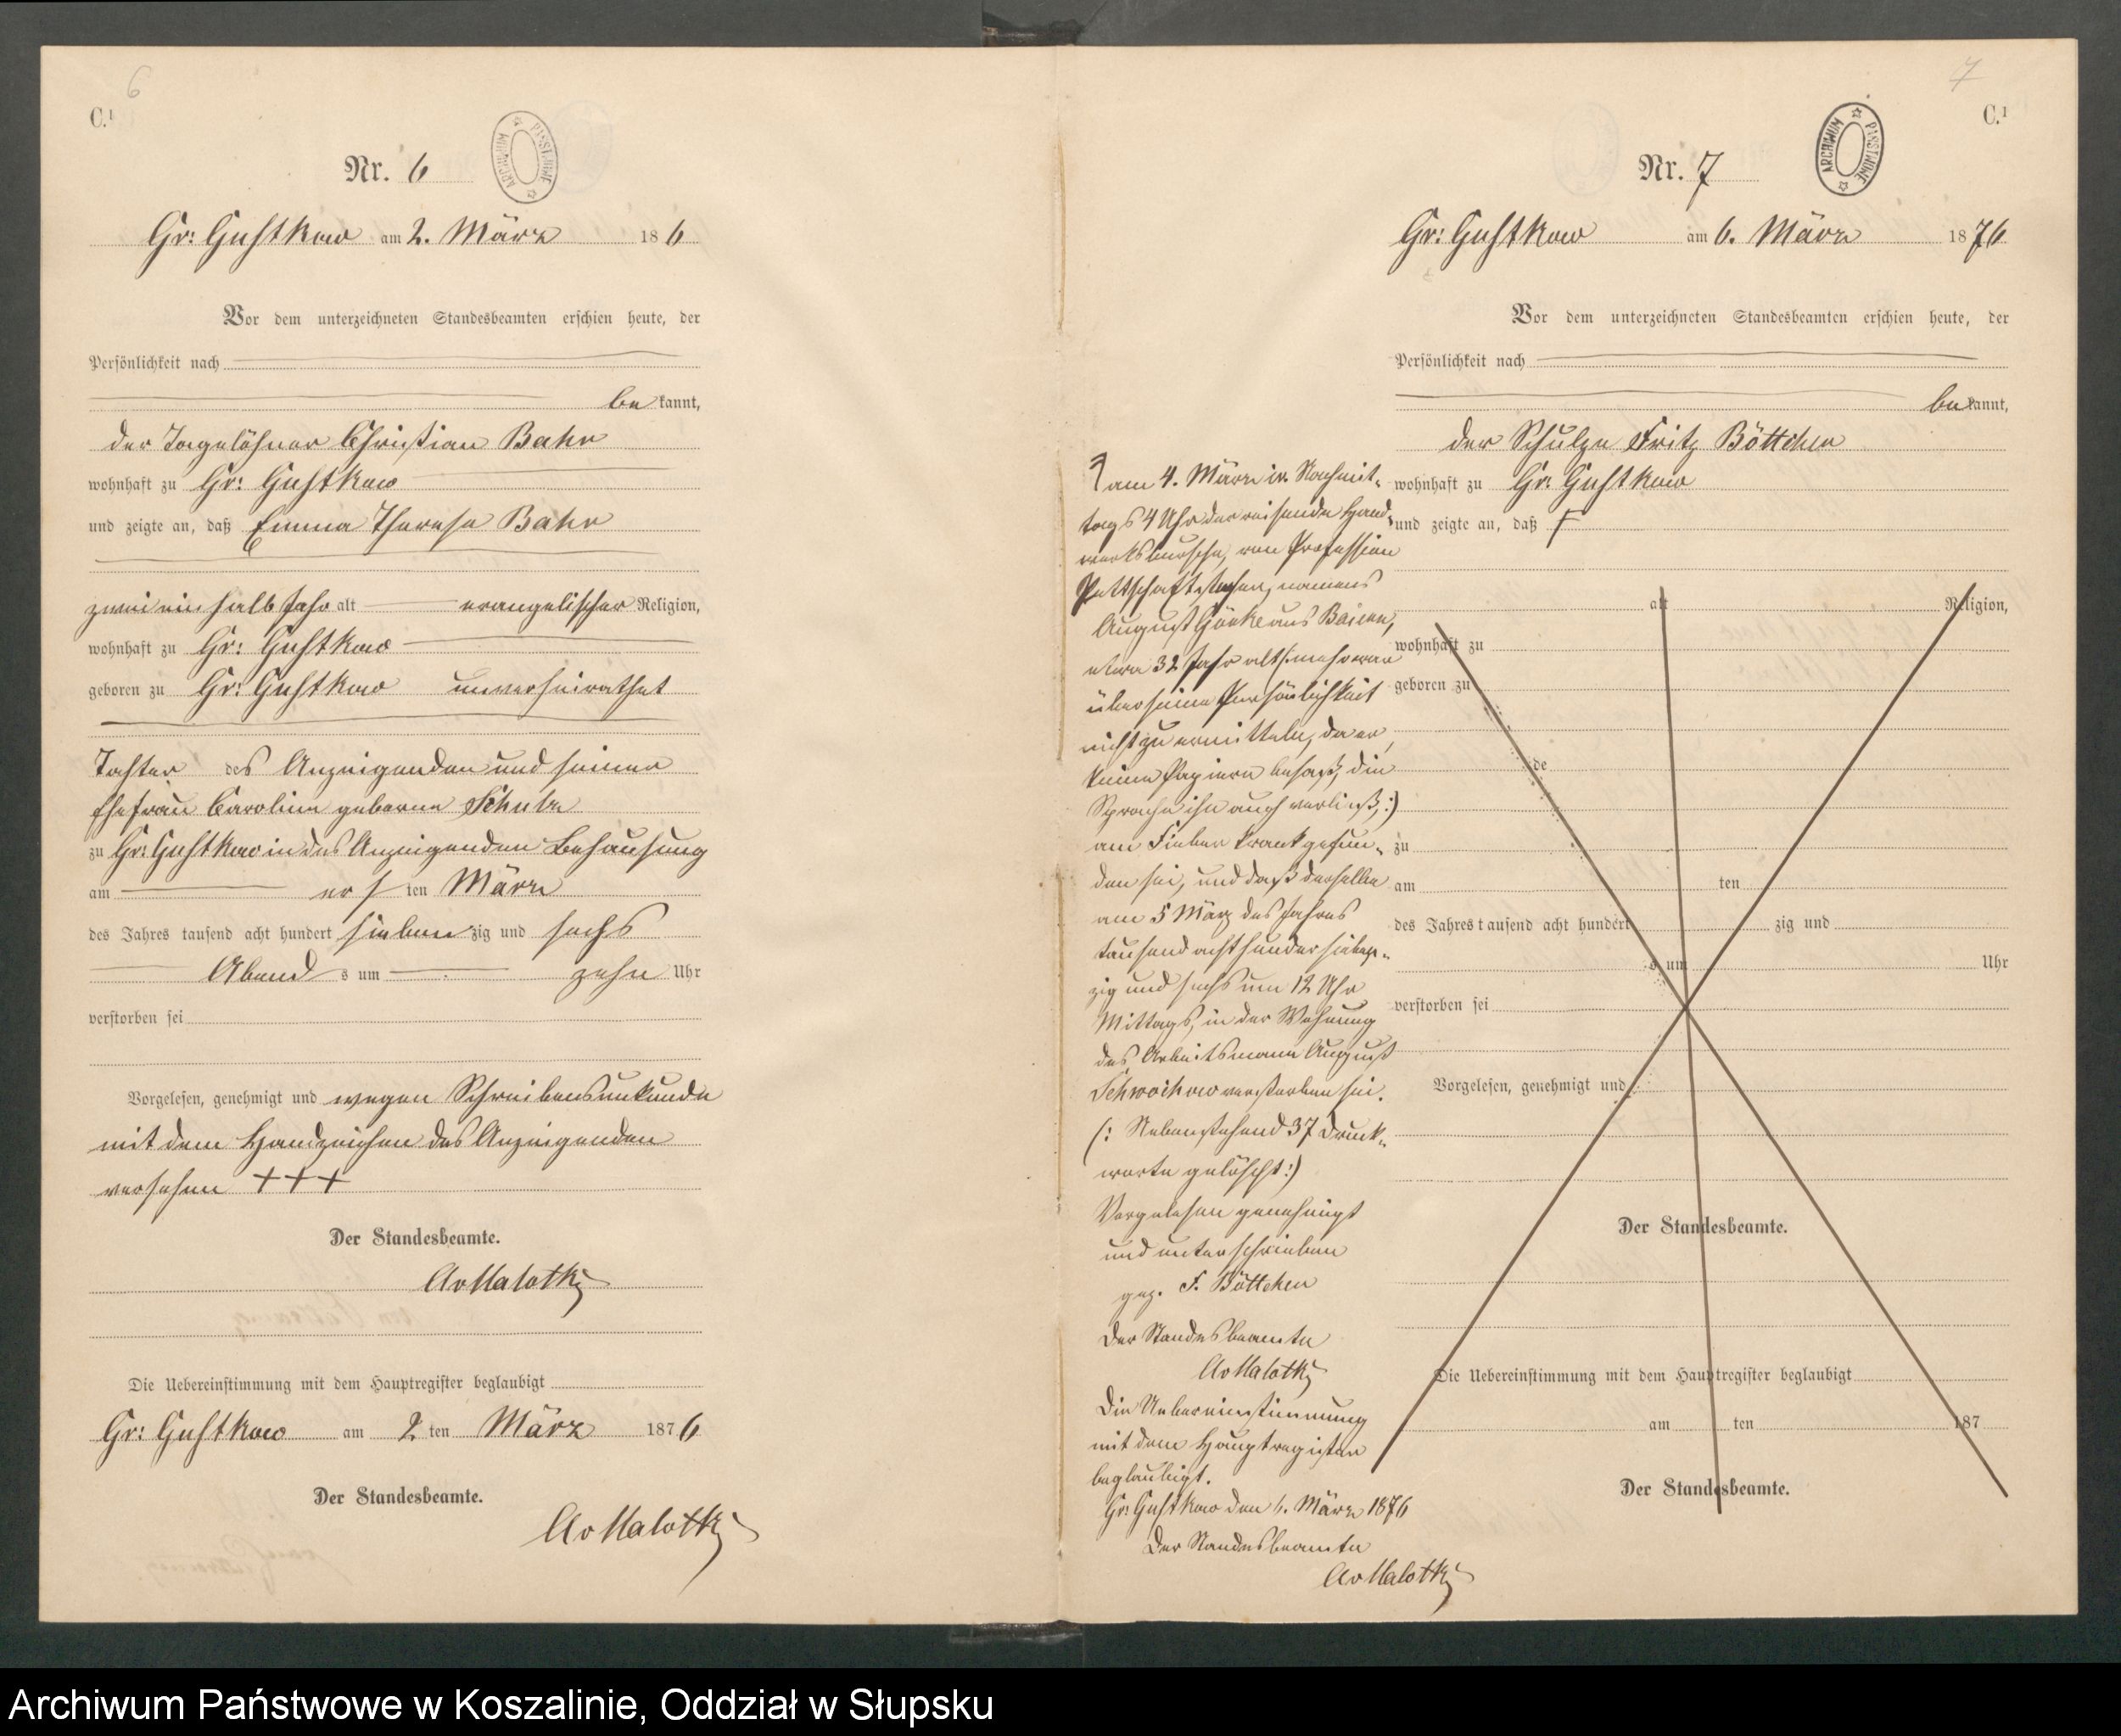 6
C.¹
Nr. 6
ARCHIWUM PAŃSTWOWE
Gr: Gustkow am 2. März 18 6
Vor dem unterzeichneten Standesbeamten erschien heute, der
Persönlichkeit nach
be kannt,
der Tagelöhner Christian Bahr
wohnhaft zu Gr: Gustkow
und zeigte an, daß Emma Therese Bahr
zwei ein halb Jahr alt evangelischer Religion,
wohnhaft zu Gr: Gustkow
geboren zu Gr: Gustkow unverheirathet
Tochter des Anzeigenden und seiner
Ehefrau Caroline geborene
zu Gr: Gustkow in des Anzeigenden Behausung
am ersten März
des Jahres tausend acht hundert sieben zig und sechs
Abend s um zehn Uhr
verstorben sei
Vorgelesen, genehmigt und wegen Schreibensunkunde
mit dem Handzeichen des Anzeigenden
versehen +++
Der Standesbeamte.
AvMalotky
Die Uebereinstimmung mit dem Hauptregister beglaubigt
Gr: Gustkow am 2 ten März 1876
Der Standesbeamte.
AvMalotky
7
C.¹
Nr. 7
ARCHIWUM PAŃSTWOWE
Gr: Gustkow am 6. März 1876
Vor dem unterzeichneten Standesbeamten erschien heute, der
Persönlichkeit nach
be kannt,
der Schulze Fritz Böttcher
wohnhaft zu Gr: Gustkow
und zeigte an, daß
alt Religion,
wohnhaft zu
geboren zu
de
zu
am ten
des Jahres tausend acht hundert zig und
s um Uhr
verstorben sei
Vorgelesen, genehmigt und
Der Standesbeamte.
Die Uebereinstimmung mit dem Hauptregister beglaubigt
am ten 187
Der Standesbeamte.
am 4. März cr. Nachmit-
tags 4 Uhr der reisende Hand-
werksbursche, von Profession
Pettschaftstecher, namens
August Görke aus Baiern,
etwa 32 Jahr alt (: mehr war
über seine Persönlichkeit
nicht zu ermitteln, da er
keine Papiere besaß, die
Sprache ihn auch verließ, :)
am Fieber krank gefun-
den sei, und daß derselbe
am 5 März des Jahres
tausend acht hundert sieben-
zig und sechs um 12 Uhr
Mittags, in der Wohnung
des Arbeitsmann August
Schwochow verstorben sei.
(: Nebenstehend 37 Druck-
worte gelöscht :)
Vorgelesen genehmigt
und unterschrieben
gez. F. Böttcher
Der Standesbeamte
AvMalotky
Die Uebereinstimmung
mit dem Hauptregister
beglaubigt.
Gr: Gustkow den 6. März 1876
Der Standesbeamte
AvMalotky
Archiwum Państwowe w Koszalinie, Oddział w Słupsku